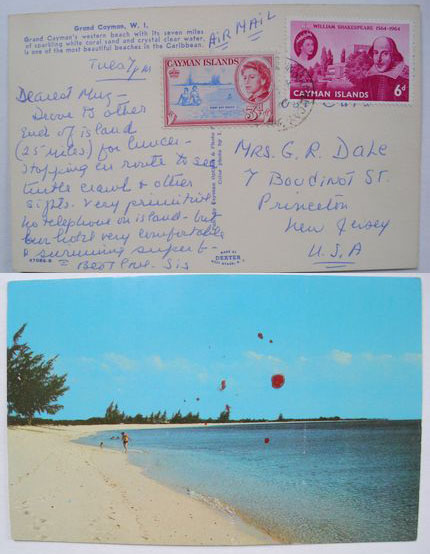 Grand Cayman, W. I.
Grand Cayman's western beach with its seven miles
of sparkling white coral sand and crystal clear water,
is one of the most beautiful beaches in the Caribbean.
AIR MAIL
Tues 7
Dearest Mug -
Drove to other
end of island
(25 miles) for lunch -
stopping en route to see
turtle crawl & other
sights. Very primitive
no telephone on island - but
our hotel very comfortable
& swimming superb -
Best Love. Sis
DEXTER
CAYMAN ISLANDS
WILLIAM SHAKESPEARE 1564-1964
CAYMAN ISLANDS
6d
MRS. G. R. Dale
7 Boudinot St.
Princeton
New Jersey
U.S.A